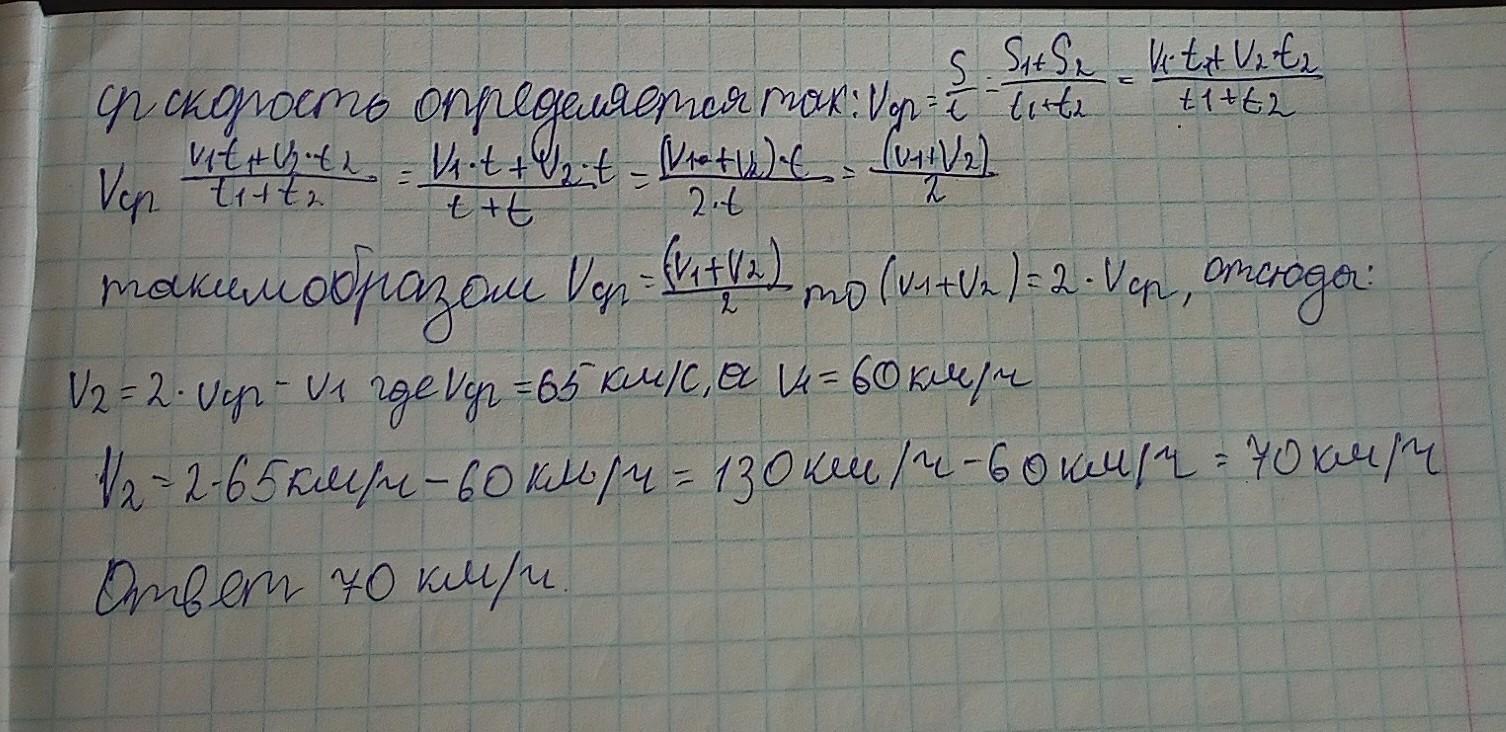 ср скорость определяется так: Vср = S/t = S1+S2/t1+t2 = V1·t1+V2·t2/t1+t2
Vср V1t1+V2·t2/t1+t2 = V1·t+V2·t/t+t = (V1+V2)·t/2·t = (V1+V2)/2
таким образом Vср = (V1+V2)/2 то (V1+V2) = 2·Vср, отсюда:
V2 = 2·Vср - V1 где Vср = 65 км/с, а V1 = 60 км/ч
V2 = 2·65 км/ч - 60 км/ч = 130 км/ч - 60 км/ч = 70 км/ч
Ответ 70 км/ч.